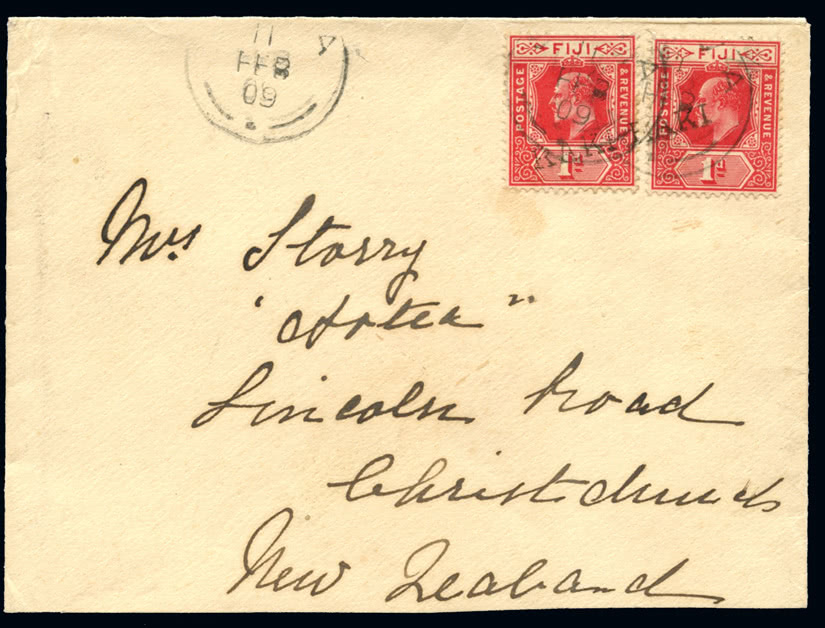 11
FEB
09
FIJI
POSTAGE & REVENUE
1D
FIJI
POSTAGE & REVENUE
1D
09
Mrs Storry
"Aotea"
Lincoln Road
Christchurch
New Zealand